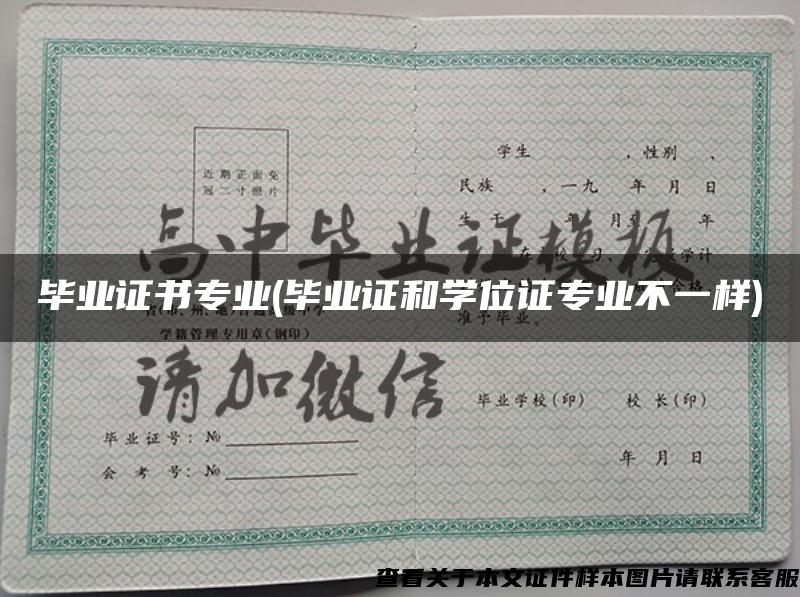 近期正面免
冠二寸照片
学生 ，性别 、
民族 ，一九 年 月 日
生于 年 月至 年
高中毕业证模板
毕业证书专业(毕业证和学位证专业不一样)
准予毕业。
学籍管理专用章(钢印)
请加微信
毕业学校(印) 校长(印)
毕业证号：№
会考号：№
年 月 日
查看关于本文证件样本图片请联系客服